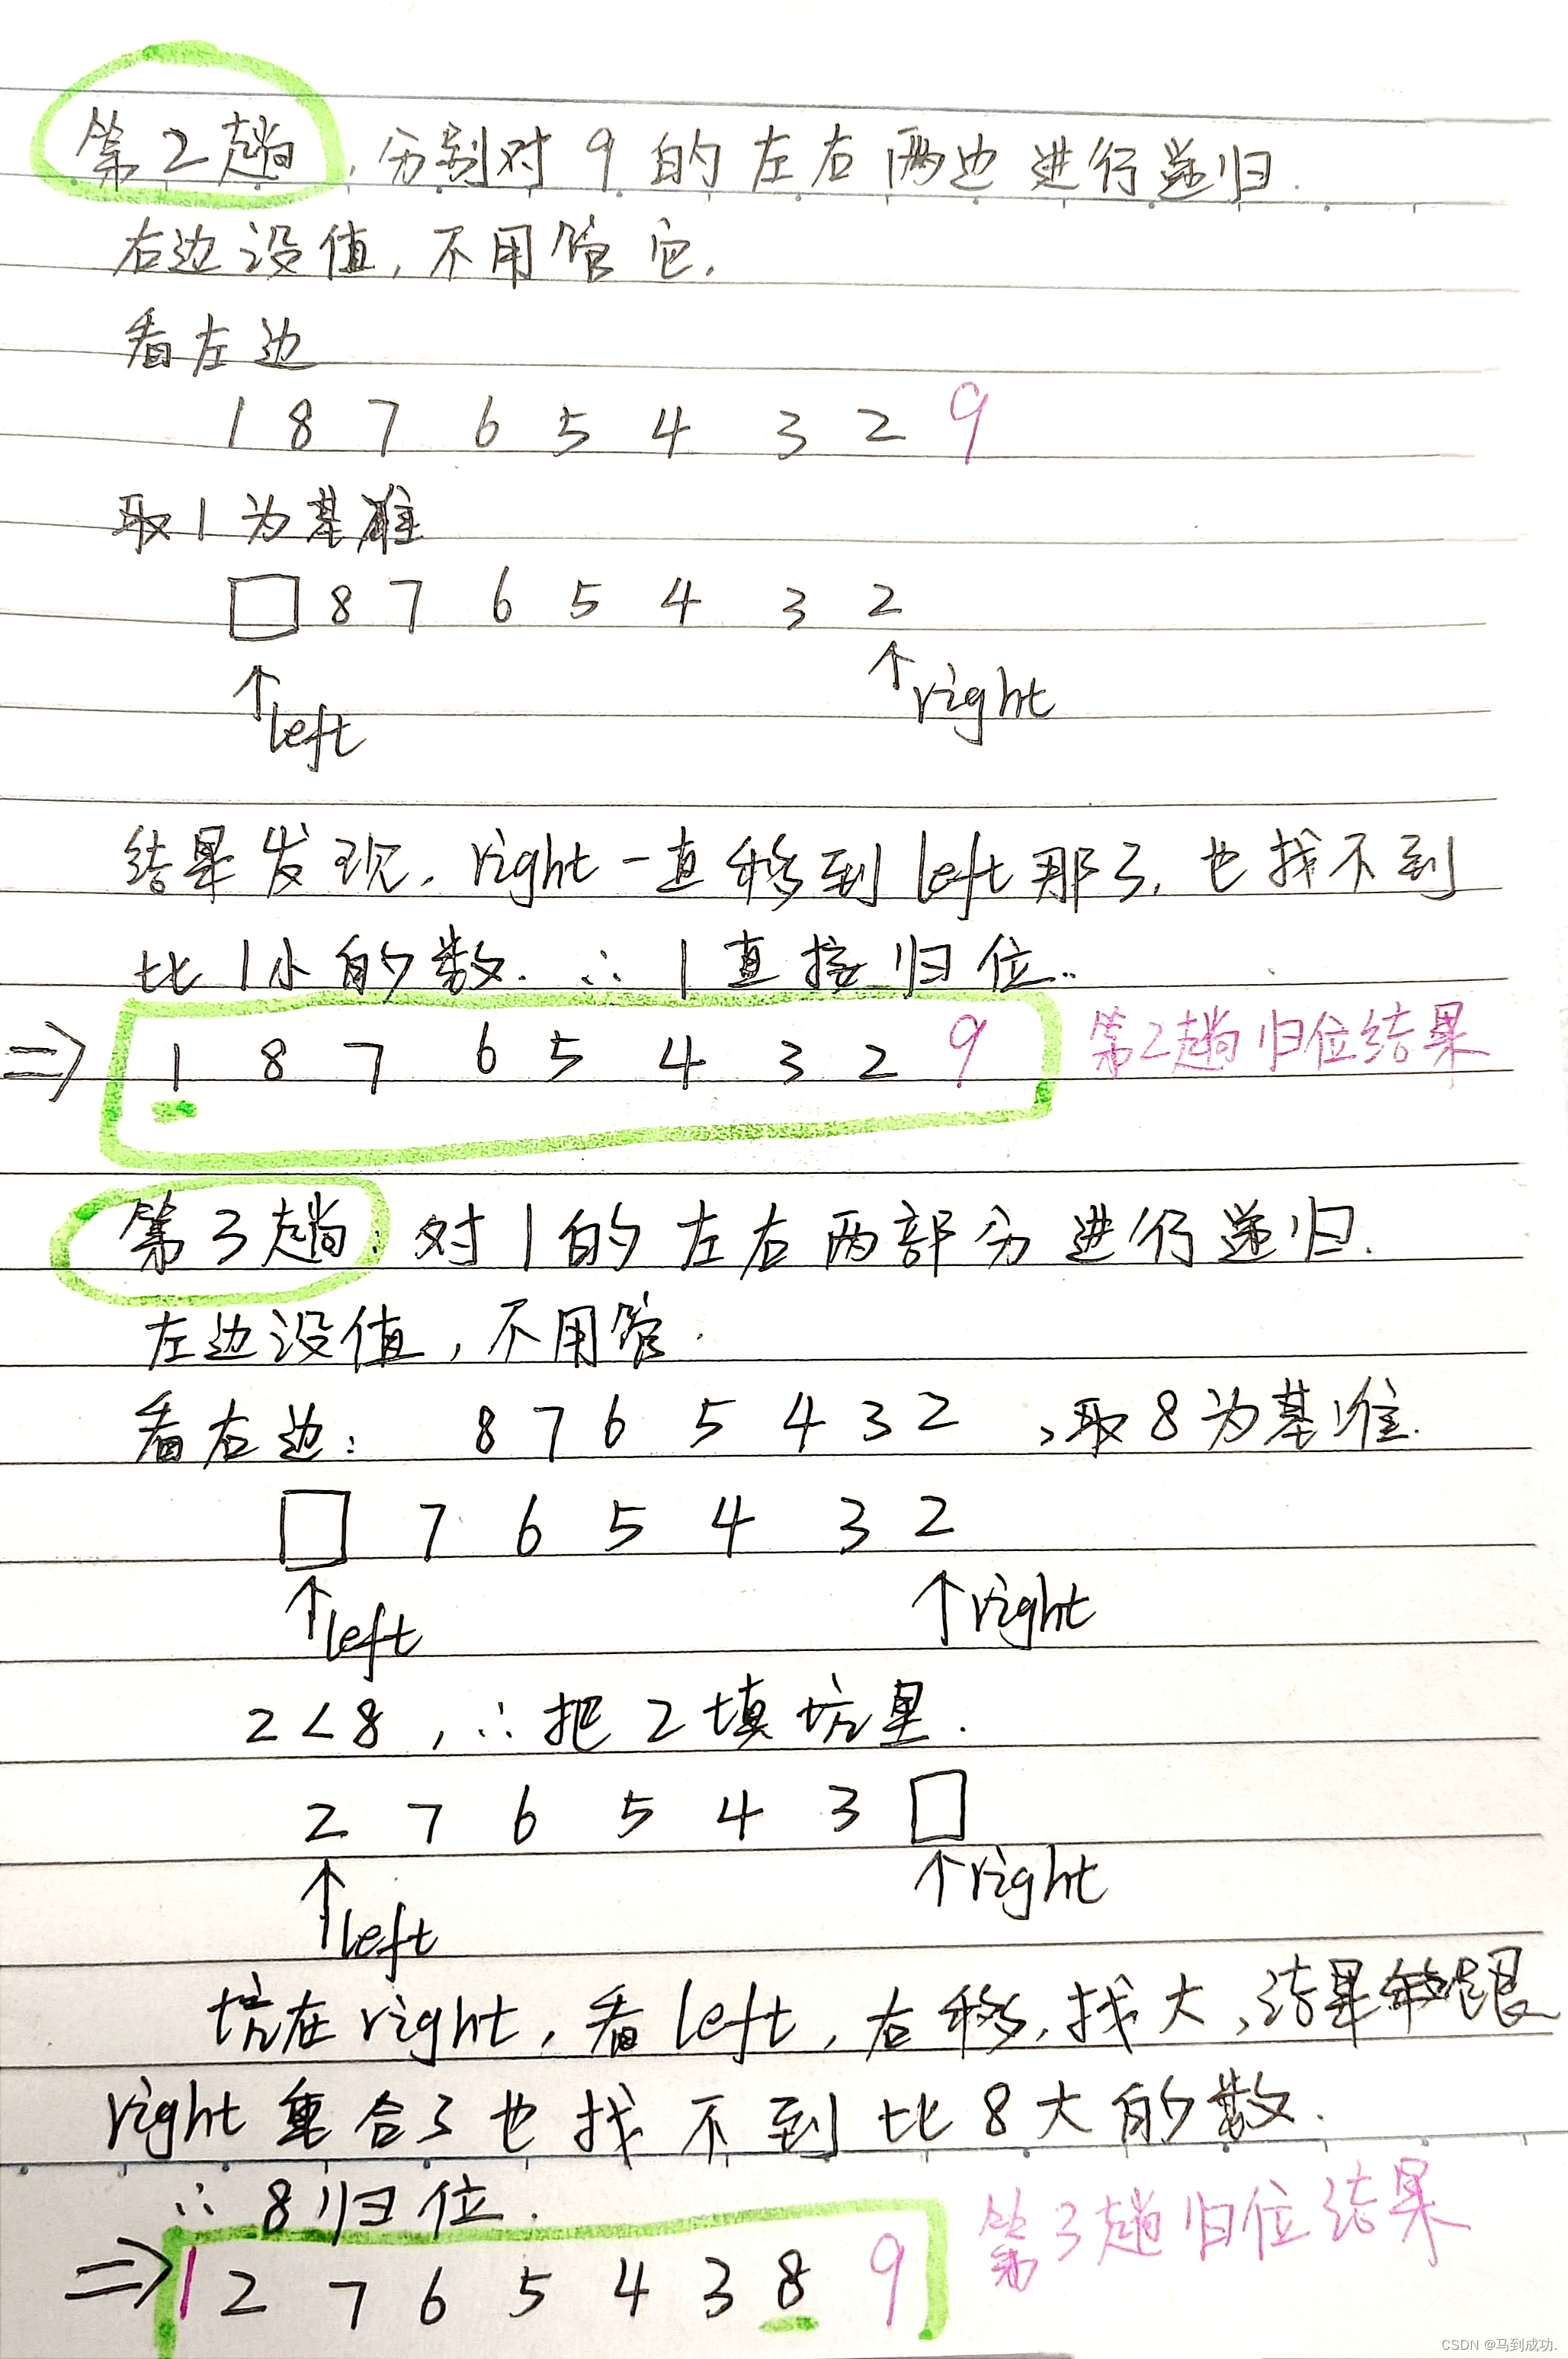 第2趟，分别对9的左右两边进行递归.
右边没值，不用管它.
看左边
1 8 7 6 5 4 3 2 9
取1为基准
□ 8 7 6 5 4 3 2
↑left ↑right
结果发现，right一直移到left那了，也找不到
比1小的数. ∴1直接归位..
=> 1 8 7 6 5 4 3 2 9 第2趟归位结果
第3趟：对1的左右两部分进行递归.
左边没值，不用管.
看右边： 8 7 6 5 4 3 2 ，取8为基准.
□ 7 6 5 4 3 2
↑left ↑right
2<8，∴把2填坑里.
2 7 6 5 4 3 □
↑left ↑right
坑在right，看left，右移，找大，结果跟
right重合了也找不到比8大的数.
∴8归位.
=> 1 2 7 6 5 4 3 8 9 第3趟归位结果
CSDN @马到成功.